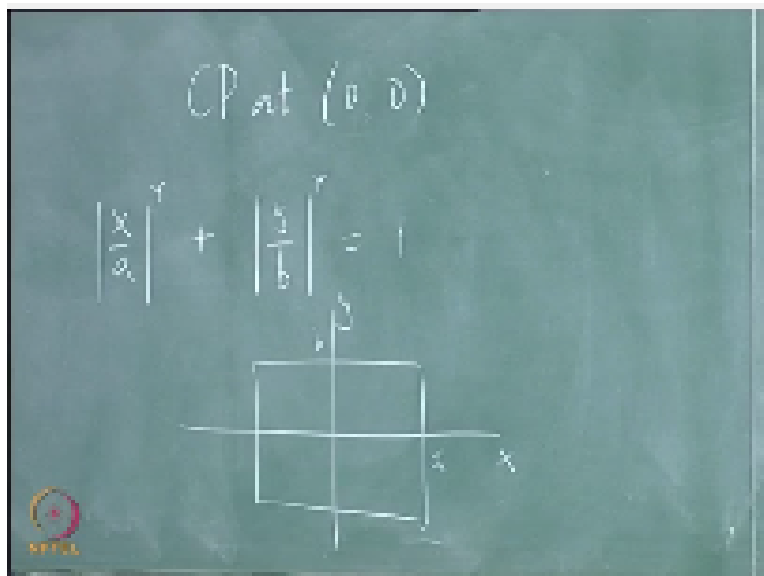 CP at (0, 0)
|x/a|^r + |y/b|^r = 1
y
b
a x
NPTEL